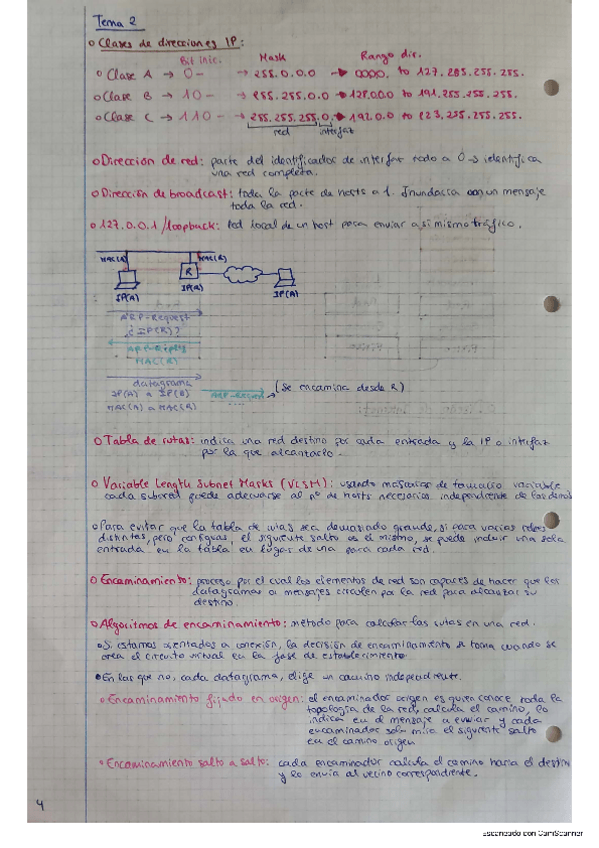 Tema 2
o Clases de direcciones IP:
Bit Inic. Mask Rango dir.
o Clase A → 0- → 255.0.0.0 → 0.0.0.0. to 127.255.255.255.
o Clase B → 10- → 255.255.0.0 → 128.0.0.0 to 191.255.255.255.
o Clase C → 110- → 255.255.255.0. → 192.0.0 to 223.255.255.255.
red interfaz
o Dirección de red: parte del identificador de interfaz todo a 0 → identifica
una red completa.
o Dirección de broadcast: toda la parte de hosts a 1. Inundacia con un mensaje
toda la red.
o 127.0.0.1 /loopback: red local de un host para enviar a si mismo tráfico.
MAC(A) MAC(R)
R
IP(A) IP(R) IP(A)
ARP-Request
¿IP(R)?
ARP-Reply
MAC(R)
datagrama (se encamina desde R)
IP(A) a IP(B)
MAC(A) a MAC(R)
o Tabla de rutas: indica una red destino por cada entrada y la IP o interfaz
por la que alcanzarlo.
o Variable Length Subnet Masks (VLSM): usando máscaras de tamaño variable
cada subred puede adecuarse al nº de hosts necesarios independiente de las demás
o Para evitar que la tabla de rutas sea demasiado grande, si para varias redes
distintas, pero contiguas, el siguiente salto es el mismo, se puede incluir una sola
entrada en la tabla en lugar de una para cada red.
o Encaminamiento: proceso por el cual los elementos de red son capaces de hacer que los
datagramas o mensajes circulen por la red para alcanzar su
destino.
o Algoritmos de encaminamiento: método para calcular las rutas en una red.
o Si estamos orientados a conexión, la decisión de encaminamiento se toma cuando se
crea el circuito virtual en la fase de establecimiento.
o En las que no, cada datagrama, elige un camino independiente.
o Encaminamiento fijado en origen: el encaminador origen es quien conoce toda la
topología de la red, calcula el camino, lo
indica en el mensaje a enviar y cada
encaminador solo mira el siguiente salto
en el camino origen
o Encaminamiento salto a salto: cada encaminador calcula el camino hacia el destino
y lo envía al vecino correspondiente.
4
Escaneado con CamScanner